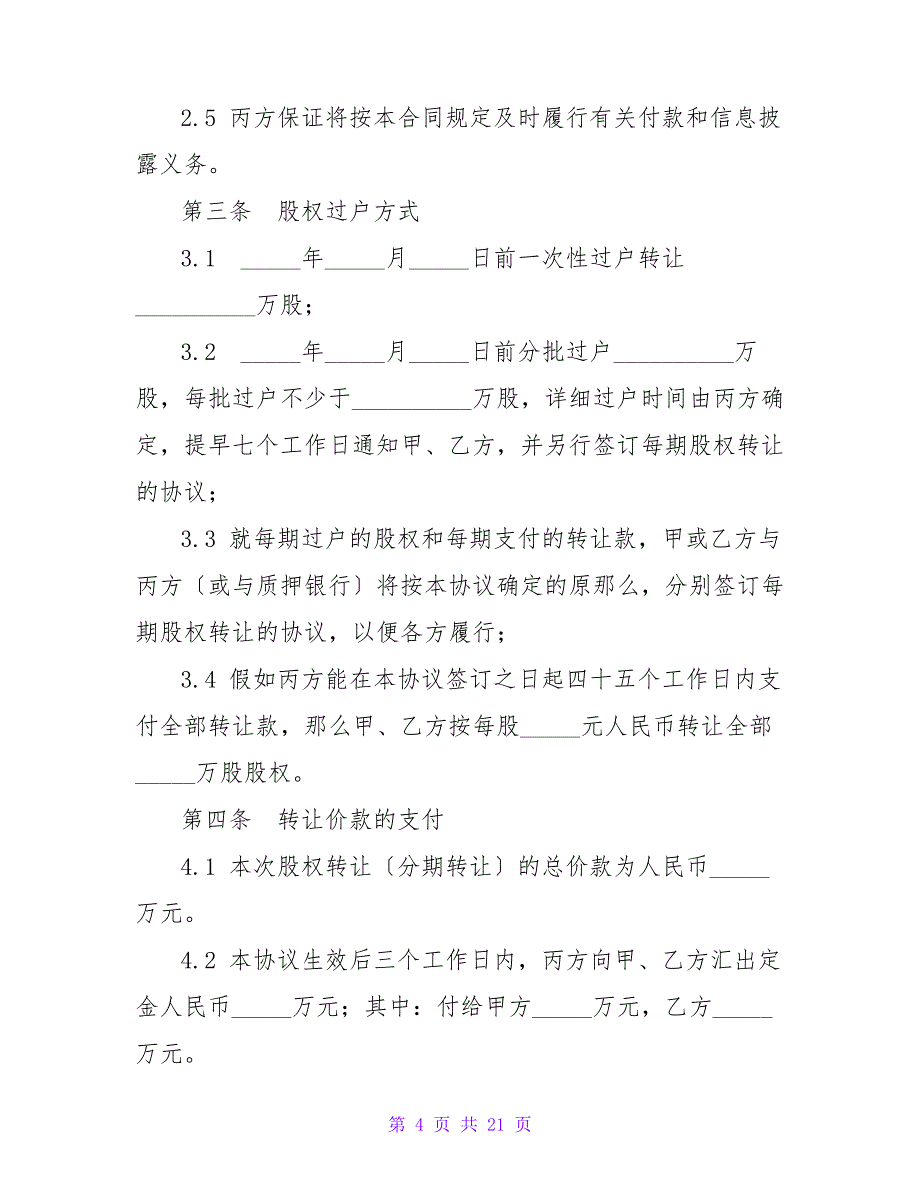 2.5 丙方保证将按本合同规定及时履行有关付款和信息披
露义务。
第三条　股权过户方式
3.1　_____年_____月_____日前一次性过户转让
__________万股；
3.2　_____年_____月_____日前分批过户__________万
股，每批过户不少于__________万股，详细过户时间由丙方确
定，提早七个工作日通知甲、乙方，并另行签订每期股权转让
的协议；
3.3 就每期过户的股权和每期支付的转让款，甲或乙方与
丙方〔或与质押银行〕将按本协议确定的原那么，分别签订每
期股权转让的协议，以便各方履行；
3.4 假如丙方能在本协议签订之日起四十五个工作日内支
付全部转让款，那么甲、乙方按每股_____元人民币转让全部
_____万股股权。
第四条　转让价款的支付
4.1 本次股权转让〔分期转让〕的总价款为人民币_____
万元。
4.2 本协议生效后三个工作日内，丙方向甲、乙方汇出定
金人民币_____万元；其中：付给甲方_____万元，乙方_____
万元。
第 4 页 共 21 页